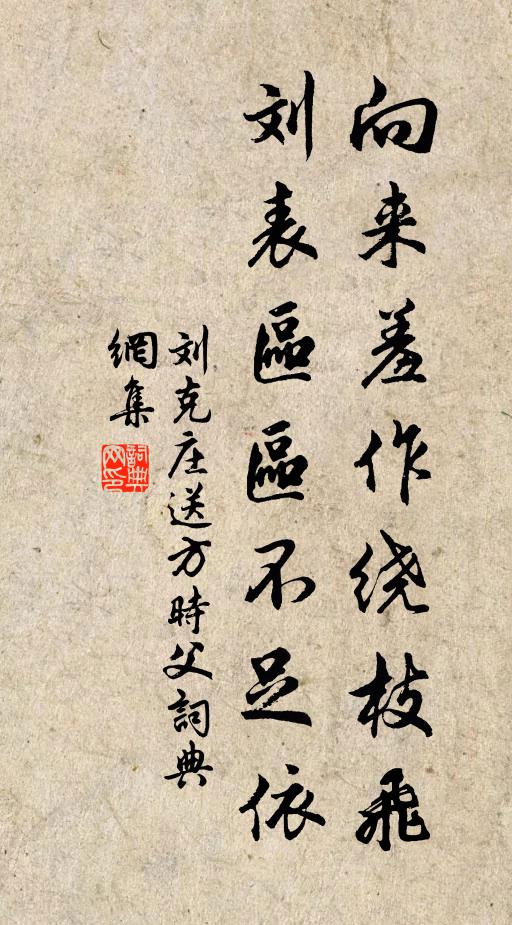 向来羞作绕枝飛
刘表區區不足依
刘克庄送方時父詞典
網集
詞典
网印